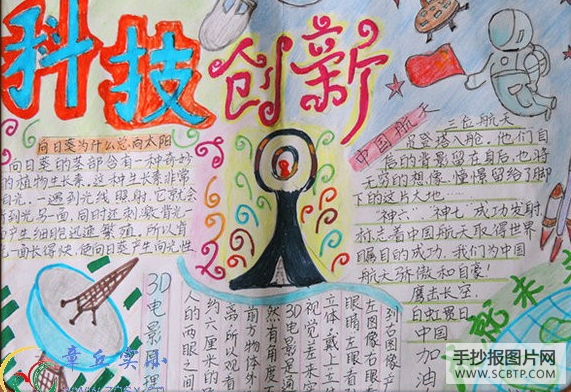 科技创新
向日葵为什么总向太阳
向日葵的茎部含有一种奇妙
的植物生长素,这种生长素非常
光。一遇到光线照射,它就会
到光另一面,同时还刺激背光
产生细胞迅速繁殖,所以背
一面长得快,使向日葵产生向光性
中国航天
三位航天
员登塔入舱,他们自
后的背景留在身后,也将
无穷的想像、憧憬留给了脚
下的这片大地……
神六、神七、成功发射,
标志着中国航天取得世界
瞩目的成功,我们为中国
航天骄傲和自豪!
鹰击长空,
白虹贯日。
中国
加油
就未
3D电影原理
人的两眼之间
约六厘米的
离,所以观看
前方物体外
然有角度
3D电影是通
视觉差来实
立体,戴上立
眼睛
左图像右眼看
到右图像产
章丘实小
手抄报图片网
WWW.SCBTP.COM